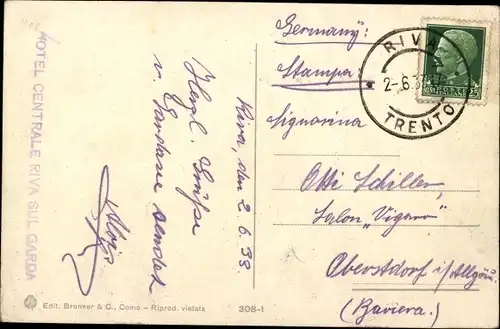 HOTEL CENTRALE RIVA SUL GARDA
Riva, den 2.6.33.
Herzl. Grüße
v. Gardasee sendet
Alois
Edit. Brunner & C., Como – Riprod. vietata
308-1
„Germany“:
Stampa
RIVA
2-.6.3
TRENTO
Signorina
Otti Schiller,
Salon „Vigaro“
Oberstdorf i/Allgäu.
(Baviera.)